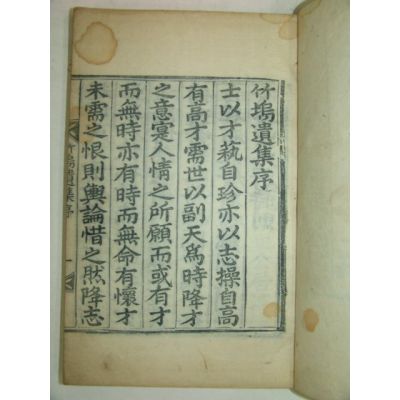 竹塢遺集序
士以才藝自珍亦以志操自高
有高才需世以副天爲時降才
之意寔人情之所願而或有才
而無時亦有時而無命有懷才
未需之恨則輿論惜之然降志
竹塢遺集序 一